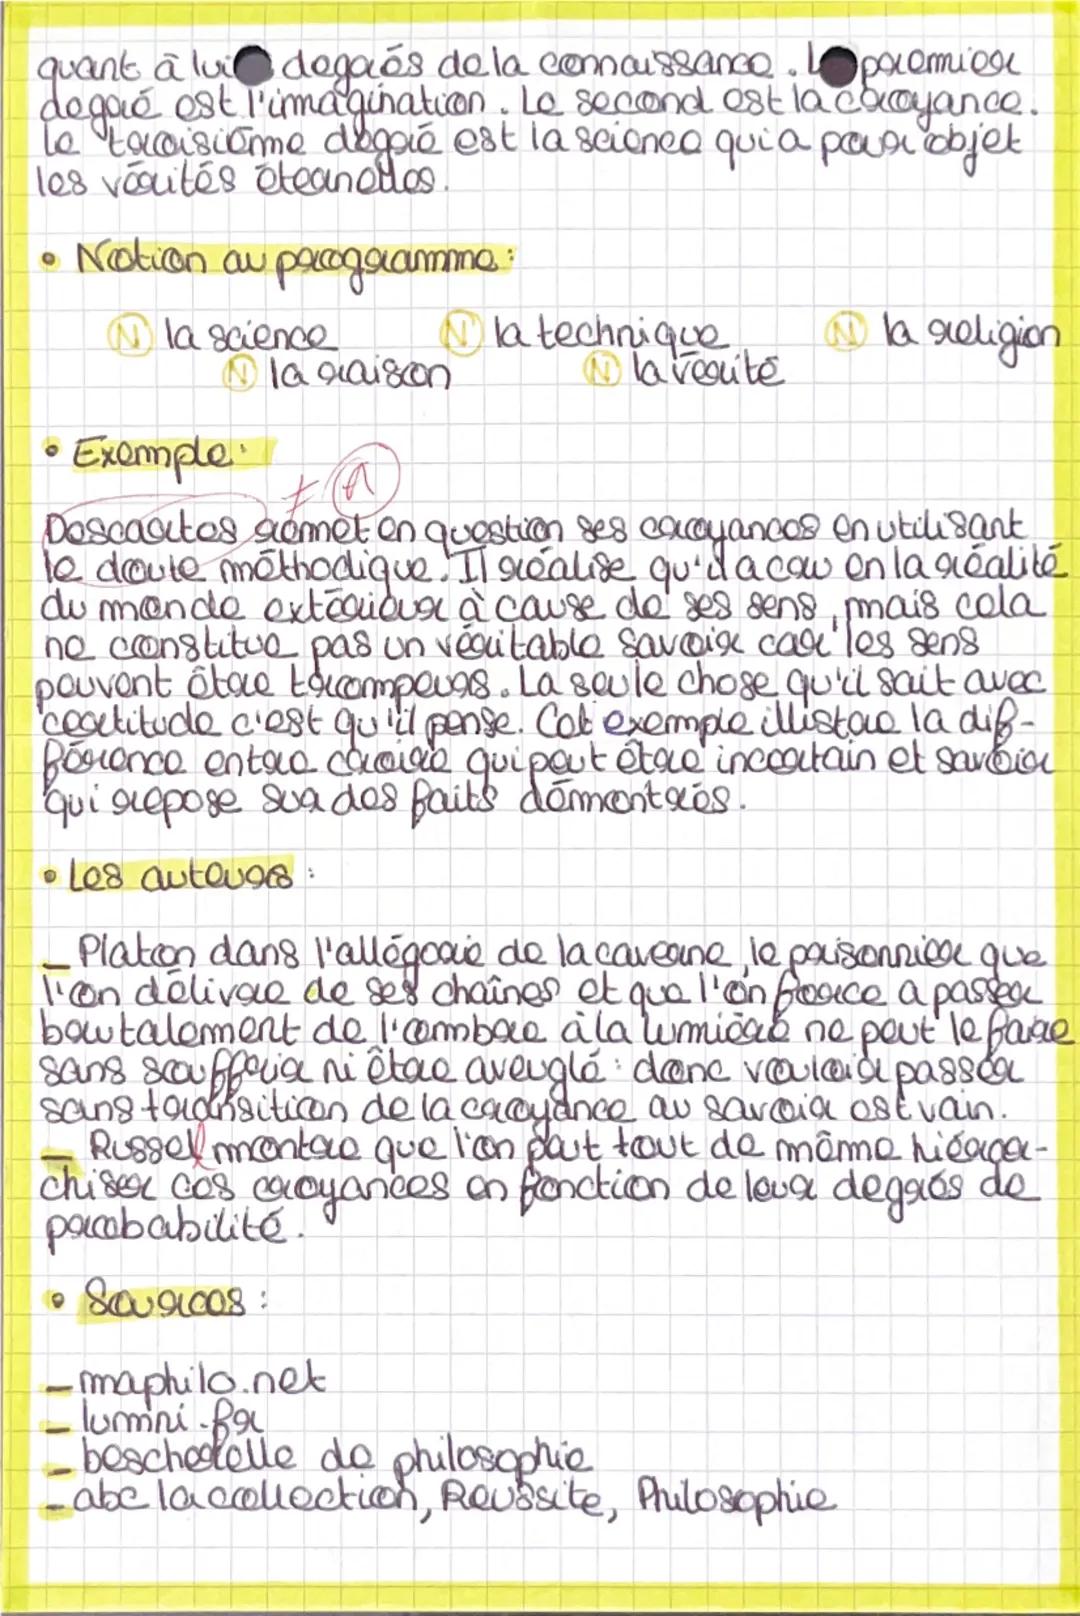 quant à lui degrés de la connaissance. L premier
degré est l'imagination. Le second est la croyance.
Le troisième degré est la science qui a pour objet
les vérités éternelles.
• Notion au programme :
N la science N la technique N la religion
N la raison N la vérité
• Exemple :
≠
Descartes remet en question ses croyances en utilisant
le doute méthodique. Il réalise qu'il a cru en la réalité
du monde extérieur à cause de ses sens, mais cela
ne constitue pas un véritable savoir car les sens
peuvent être trompeurs. La seule chose qu'il sait avec
certitude c'est qu'il pense. Cet exemple illistre la dif-
férence entre croire qui peut être incertain et savoir
qui repose sur des faits démontrés.
• Les auteurs :
– Platon dans l'allégorie de la caverne, le prisonnier que
l'on délivre de ses chaînes et que l'on force a passer
brutalement de l'ombre à la lumière ne peut le faire
sans souffrir ni être aveuglé : donc vouloir passer
sans transition de la croyance au savoir est vain.
– Russell montre que l'on peut tout de même hiérar-
chiser ces croyances en fonction de leur degrés de
probabilité.
• Sources :
– maphilo.net
– lumni.fr
– bescherelle de philosophie
– abc la collection, Reussite, Philosophie